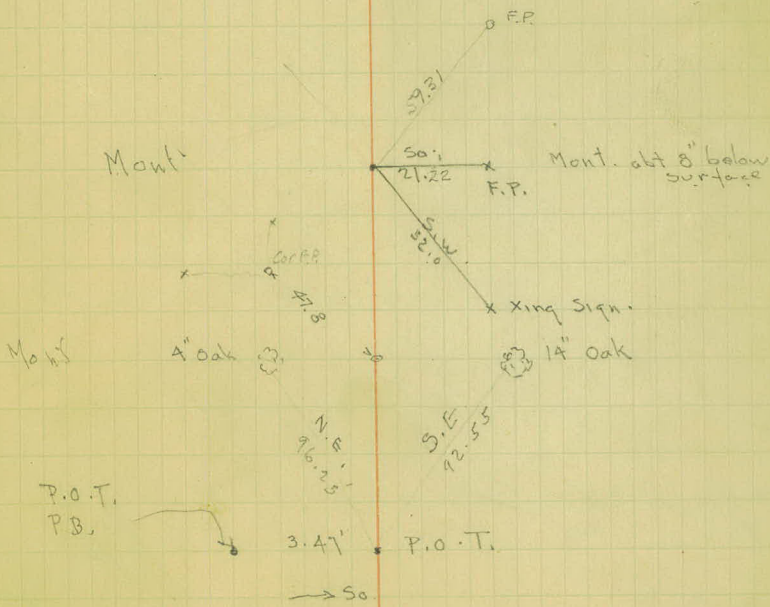 F.P.
39.31
Mont.
So.
21.22
F.P.
Mont. abt 8" below
surface
S.W.
32.0
Cor F.P.
47.8
Xing Sign.
Mont
4" Oak
14" Oak
N.E.
96.25
S.E
92.55
P.O.T.
P.B.
3.47'
P.O.T.
So.